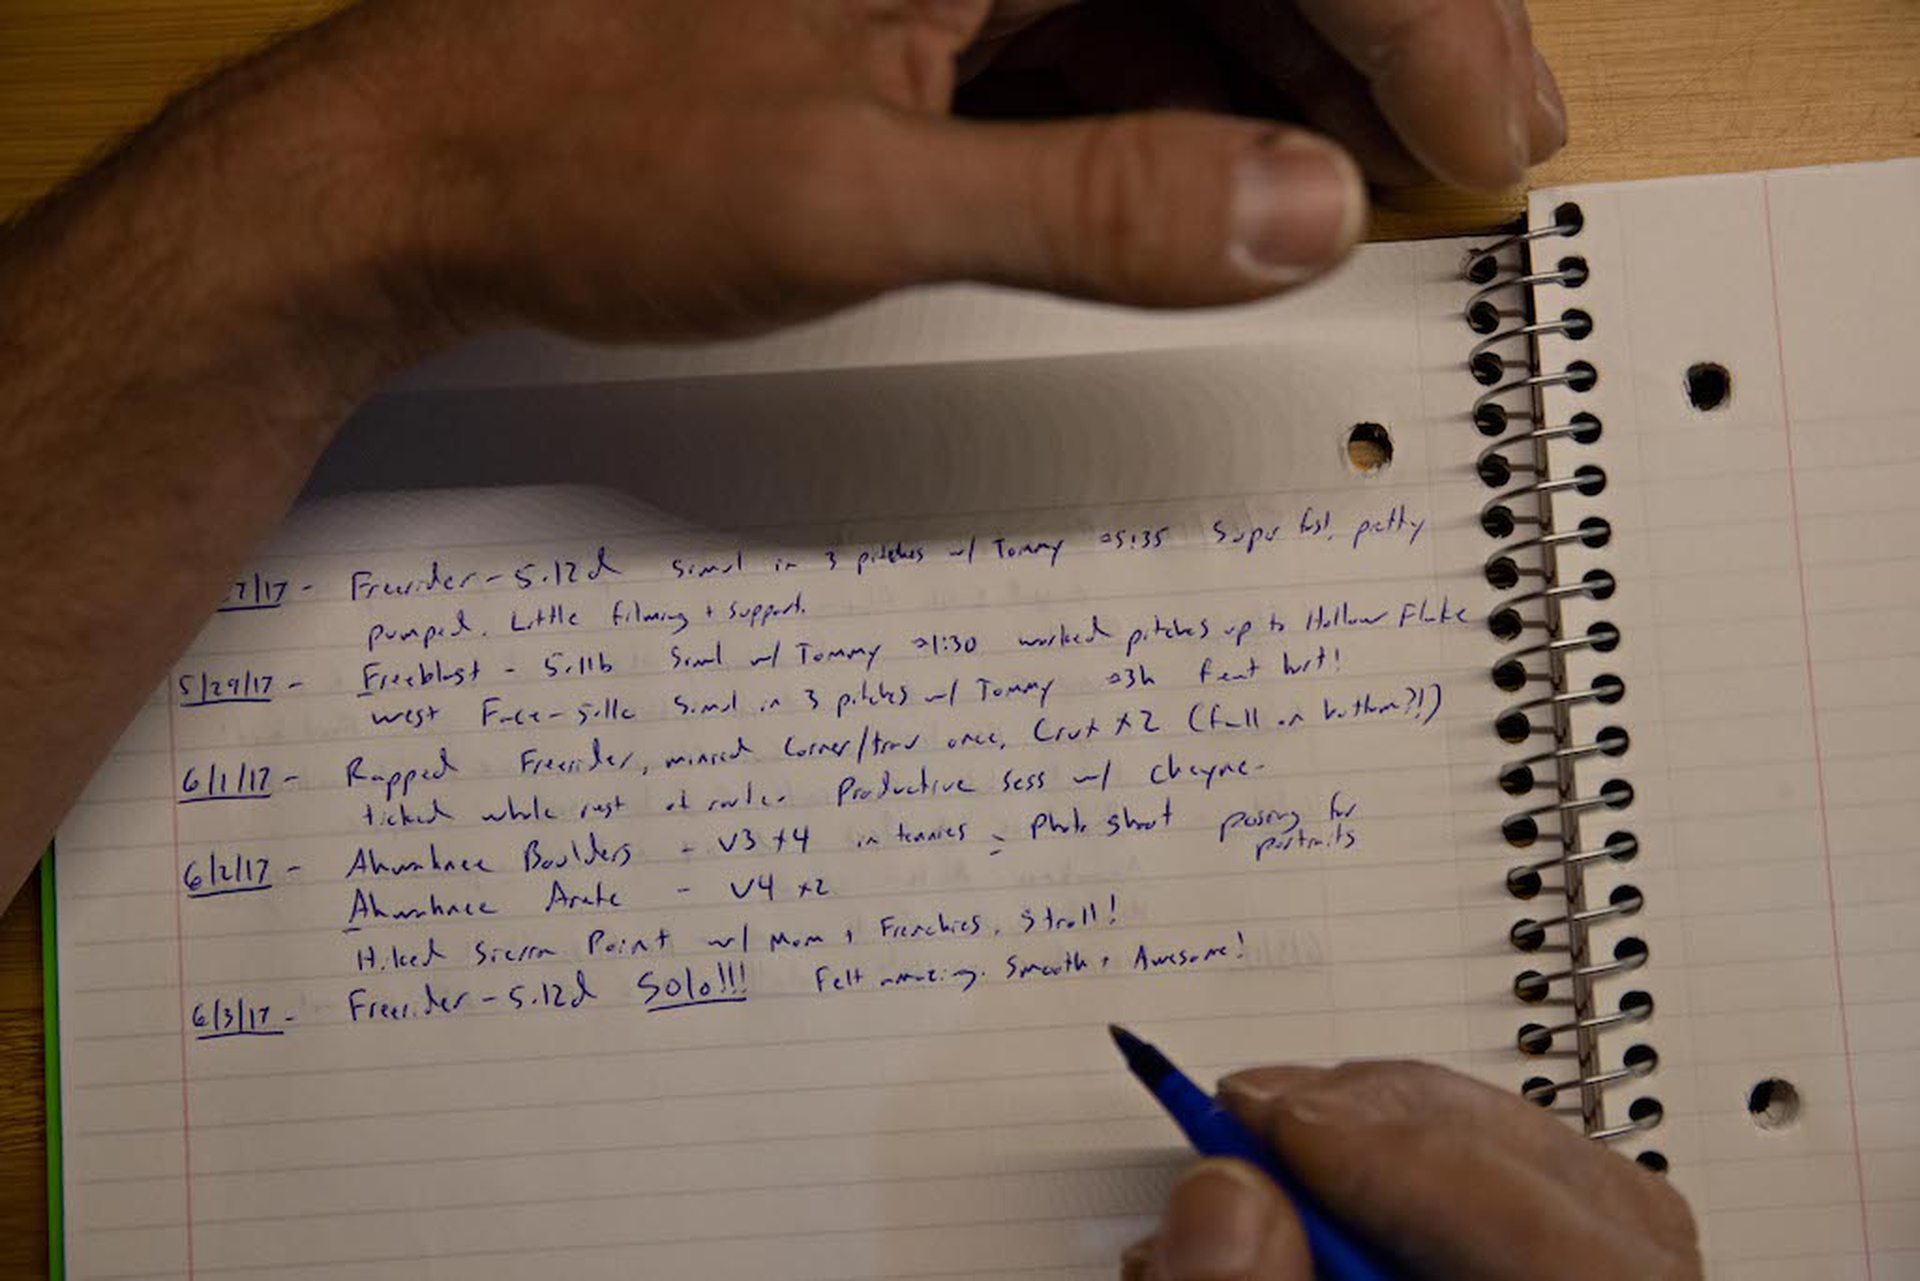 7/17 - Freerider - 5.12d Simul in 3 pitches w/ Tommy 5:35 Super fast, pretty
pumped. Little filming + support.
5/29/17 - Freeblast - 5.11b Simul w/ Tommy 1:30 worked pitches up to Hollow Flake
West Face - 5.11c Simul in 3 pitches w/ Tommy 3h feet hurt!
6/1/17 - Rapped Freerider, Corner/trav once, Crux x2 (fall on bottom?!)
ticked whole rest of route. Productive sess w/ Cheyne.
6/2/17 - Ahwahnee Boulders - V3 x4 in tennies = Photo shoot posing for
portraits
Ahwahnee Arete - V4 x2
Hiked Sierra Point w/ Mom + Frenchies. Stroll!
6/3/17 - Freerider - 5.12d Solo!!! Felt amazing. Smooth + Awesome!